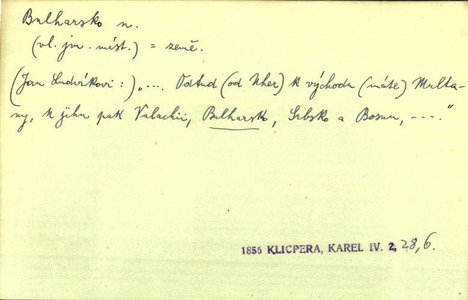 Bulharsko n.
(vl. jm. míst.) = země.
(Jan Ludvíkovi:) „.... Odtud (od Uher) k východu (máte) Multa-
ny, k jihu pak Valachii, Bulharsko, Srbsko a Bosnu, ----."
1856 KLICPERA, KAREL IV. 2, 28, 6.